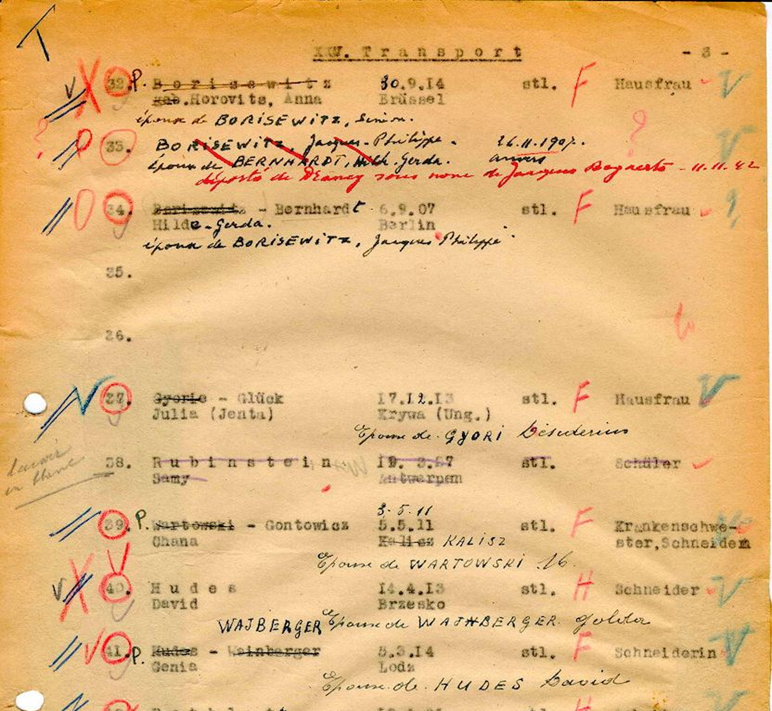 T
XXV. Transport - 3 -
32. P. Borisewitz 30.9.14 stl. F Hausfrau
geb. Horovits, Anna Brüssel
épouse de BORISEWITZ, Simon.
? P 33. BORISEWITZ, Jacques-Philippe. 26.11.1907. ?
épouse de BERNHARDT, Gerda. anvers
déporté de Drancy sous nom de Jacques Bogaerts - 11.11.42
34. Borisewitz - Bernhardt 6.9.07 stl. F Hausfrau ?
Hilde-Gerda. Berlin
épouse de BORISEWITZ, Jacques Philippe.
35.
36.
37. Gyorie - Glück 17.12.13 stl. F Hausfrau
Julia (Jenta) Krywa (Ung.)
Epouse de GYORI Désidérius
38. Rubinstein stl. Schüler
Samy Antwerpen
laisser en blanc
3.5.11
39. P. Wartowski - Gontowicz 5.5.11 stl. F Krankenschwe-
Chana Kalisz KALISZ ster, Schneiderin
Epouse de WARTOWSKI
40. Hudes 14.4.13 stl. H Schneider
David Brzesko
WAJBERGER Epouse de WAJHBERGER Golda
41. P. Hudes - Weinberger 5.3.14 stl. F Schneiderin
Genia Lodz
Epouse de HUDES David